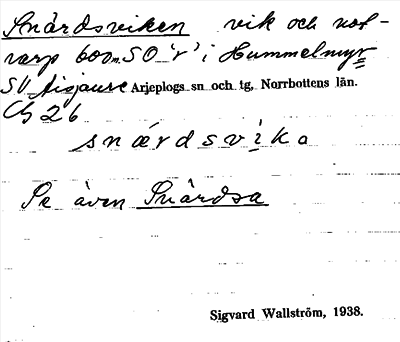 Snärdsviken vik och not-
varp 600m SO 'r' i Hummelmyr
SV Aisjaure Arjeplogs sn och tg, Norrbottens län.
C526
snærdsvika
Se även Snärdsa
Sigvard Wallström, 1938.